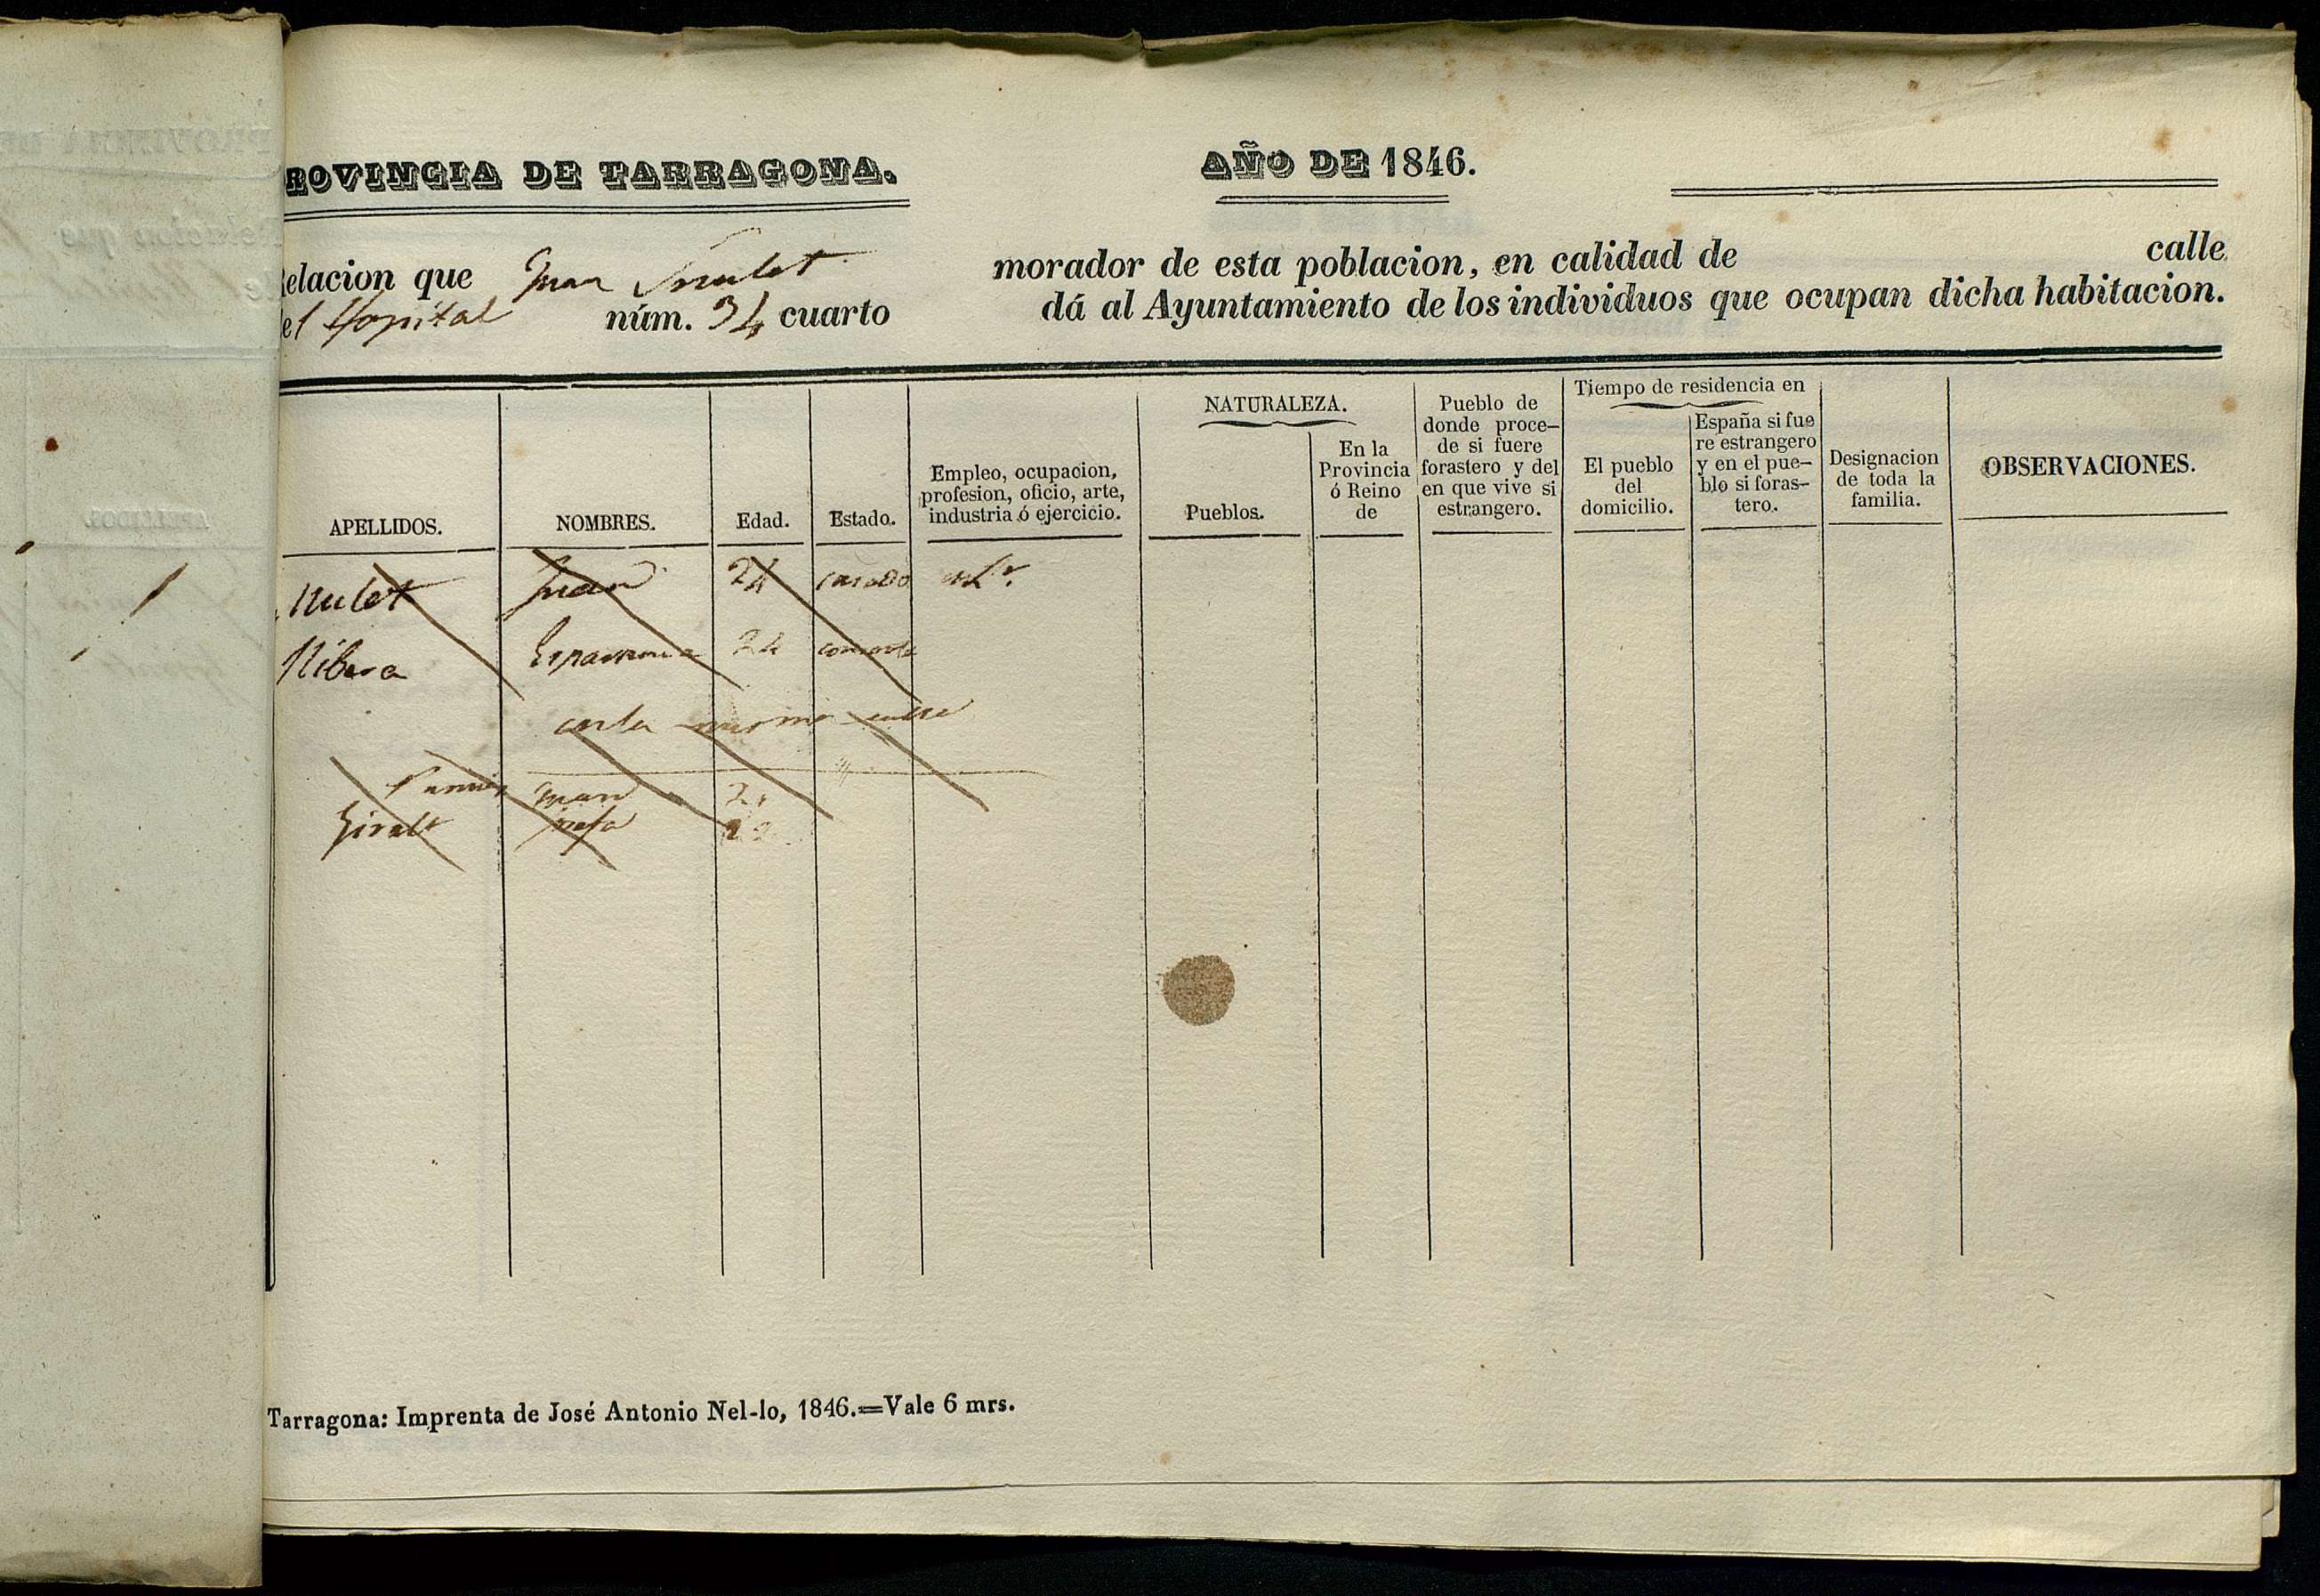 ROVINCIA DE TARRAGONA.
AÑO DE 1846.
elacion que Juan Mulet morador de esta poblacion, en calidad de calle
el Hospital núm. 34 cuarto dá al Ayuntamiento de los individuos que ocupan dicha habitacion.
APELLIDOS.
NOMBRES.
Edad.
Estado.
Empleo, ocupacion,
profesion, oficio, arte,
industria ó ejercicio.
NATURALEZA.
Pueblos.
En la
Provincia
ó Reino
de
Pueblo de
donde proce-
de si fuere
forastero y del
en que vive si
estrangero.
Tiempo de residencia en
El pueblo
del
domicilio.
España si fue
re estrangero
y en el pue-
blo si foras-
tero.
Designacion
de toda la
familia.
OBSERVACIONES.
Mulet Juan 24 casado
Ribera 24 consorte
Juan
Giralt
Tarragona: Imprenta de José Antonio Nel-lo, 1846.=Vale 6 mrs.